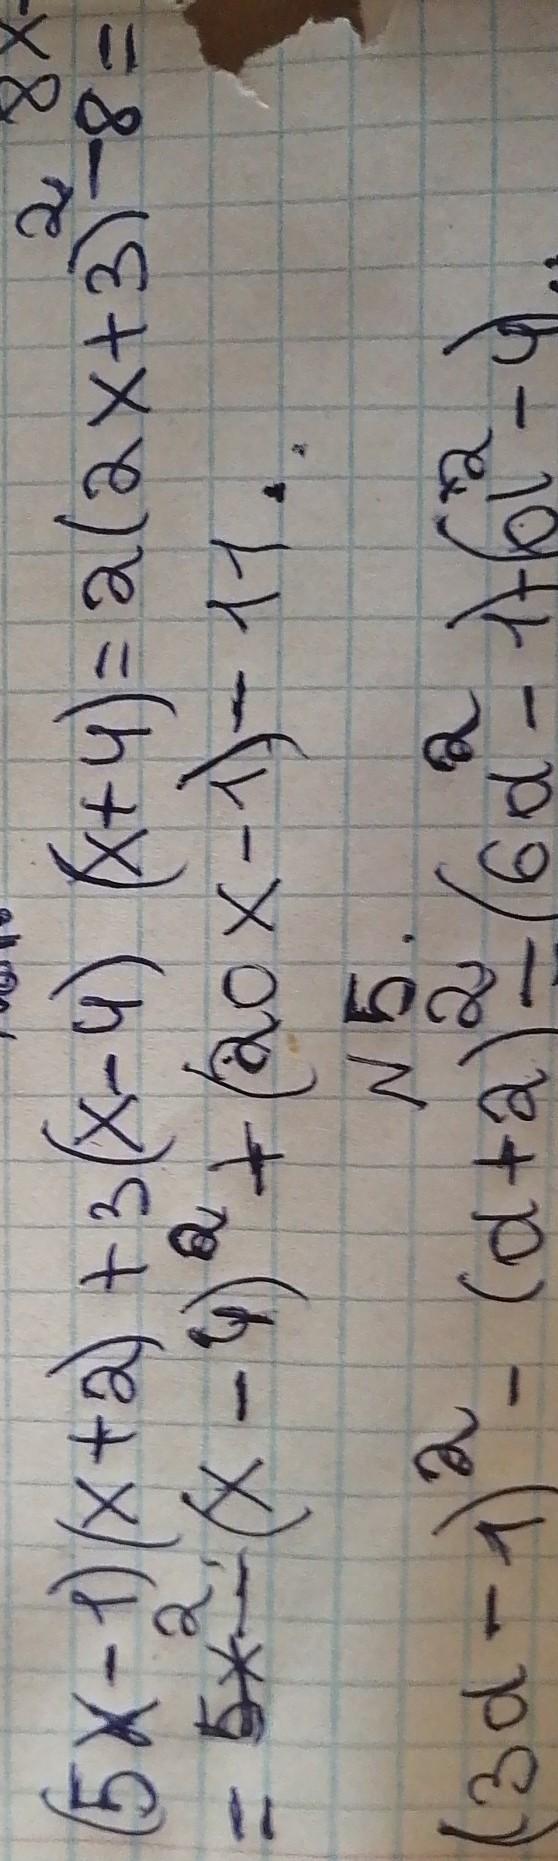 8x-
(5x-1)(x+2)+3(x-4)(x+4)=2(2x+3)²-8=
=5x²-(x-4)²+(20x-1)-11.
N5.
(3a-1)²-(a+2)²=(6a²-1)+(a²-4)..